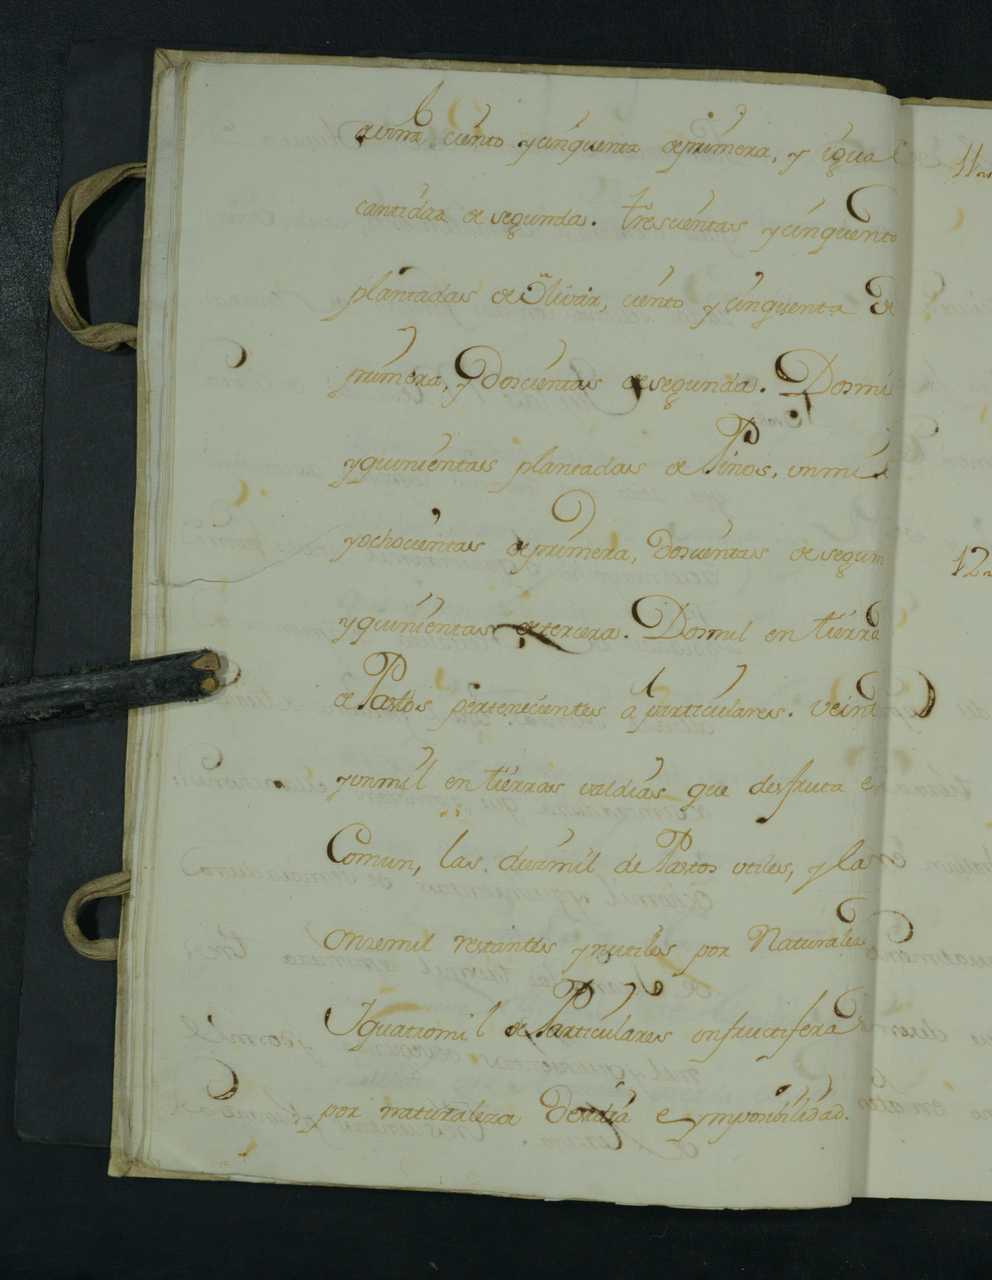 de viña ciento y cinquenta de primera, y igual
cantidad de segunda. trescientas y cinquenta
plantadas de Olivar, ciento y cinquenta de
primera, y Doscientas de segunda. Dosmil
y quinientas plantadas de Pinos, un mil
y ochocientas de primera, Doscientas de segun
y quinientas de tercera. Dosmil en tierra
de Pastos pertenecientes a particulares. veint
y un mil en tierras valdias que disfruta el
Comun, las diezmil de Pastos utiles, y la
Onzemil restantes ynutiles por Naturaleza
Y quatromil de Particulares ynfructifera
por naturaleza Desidia e ymposibilidad.
11a
12a